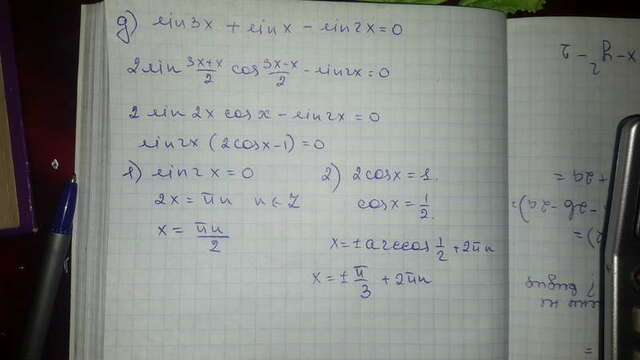 д) sin3x + sinx - sin2x = 0
2sin (3x+x)/2 cos (3x-x)/2 - sin2x = 0
2 sin 2x cosx - sin2x = 0
sin2x (2cosx-1) = 0
1) sin2x = 0
2x = πn n ∈ Z
x = πn/2
2) 2cosx = 1.
cosx = 1/2.
x = ± arccos 1/2 + 2πn
x = ± π/3 + 2πn
x - y² - 2
+ 2a =
- 2b - 2a) =
2) =
=